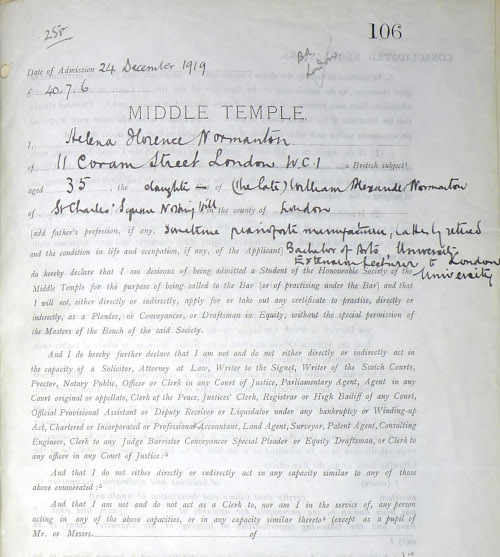 258
106
Date of Admission 24 December 1919
£ 40.7.6
Bd. London
MIDDLE TEMPLE
I, Helena Florence Normanton
of 11 Coram Street London W.C.1 a British subject¹
aged 35, the daughter of (the late) William Alexander Normanton
of St Charles' Square Notting Hill in the county of London
[add father's profession, if any, sometime pianoforte manufacturer, latterly retired
and the condition in life and occupation, if any, of the Applicant] Bachelor of Arts, University
Extension Lecturer to London
University
do hereby declare that I am desirous of being admitted a Student of the Honourable Society of the
Middle Temple for the purpose of being called to the Bar [or of practising under the Bar] and that
I will not, either directly or indirectly, apply for or take out any certificate to practise, directly or
indirectly, as a Pleader, or Conveyancer, or Draftsman in Equity, without the special permission of
the Masters of the Bench of the said Society.
And I do hereby further declare that I am not and do not either directly or indirectly act in
the capacity of a Solicitor, Attorney at Law, Writer to the Signet, Writer of the Scotch Courts,
Proctor, Notary Public, Officer or Clerk in any Court of Justice, Parliamentary Agent, Agent in
any Court original or appellate, Clerk of the Peace, Justices' Clerk, Registrar or High Bailiff of any Court,
Official Provisional Assistant or Deputy Receiver or Liquidator under any bankruptcy or Winding-up
Act, Chartered or Incorporated or Professional Accountant, Land Agent, Surveyor, Patent Agent, Consulting
Engineer, Clerk to any Judge Barrister Conveyancer Special Pleader or Equity Draftsman, or Clerk to
any officer in any Court of Justice:²
And that I do not either directly or indirectly act in any capacity similar to any of those
above enumerated:²
And that I am not and do not act as a Clerk to, nor am I in the service of, any person
acting in any of the above capacities, or in any capacity similar thereto³ (except as a pupil of
Mr. or Messrs. of